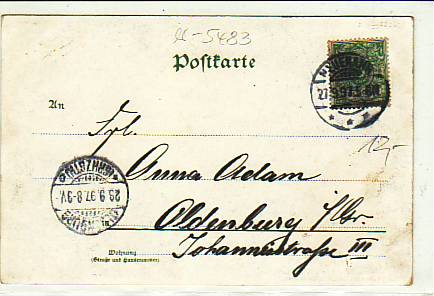 U-5483
Postkarte
An
Frl.
Anna Adam
Oldenburg i/Gr.
Johannisstraße III
Wohnung
(Straße und Hausnummer)
27.9.97
29.9.97.8-9V.
OLDENBURG
(GRHZGTH)
12,-